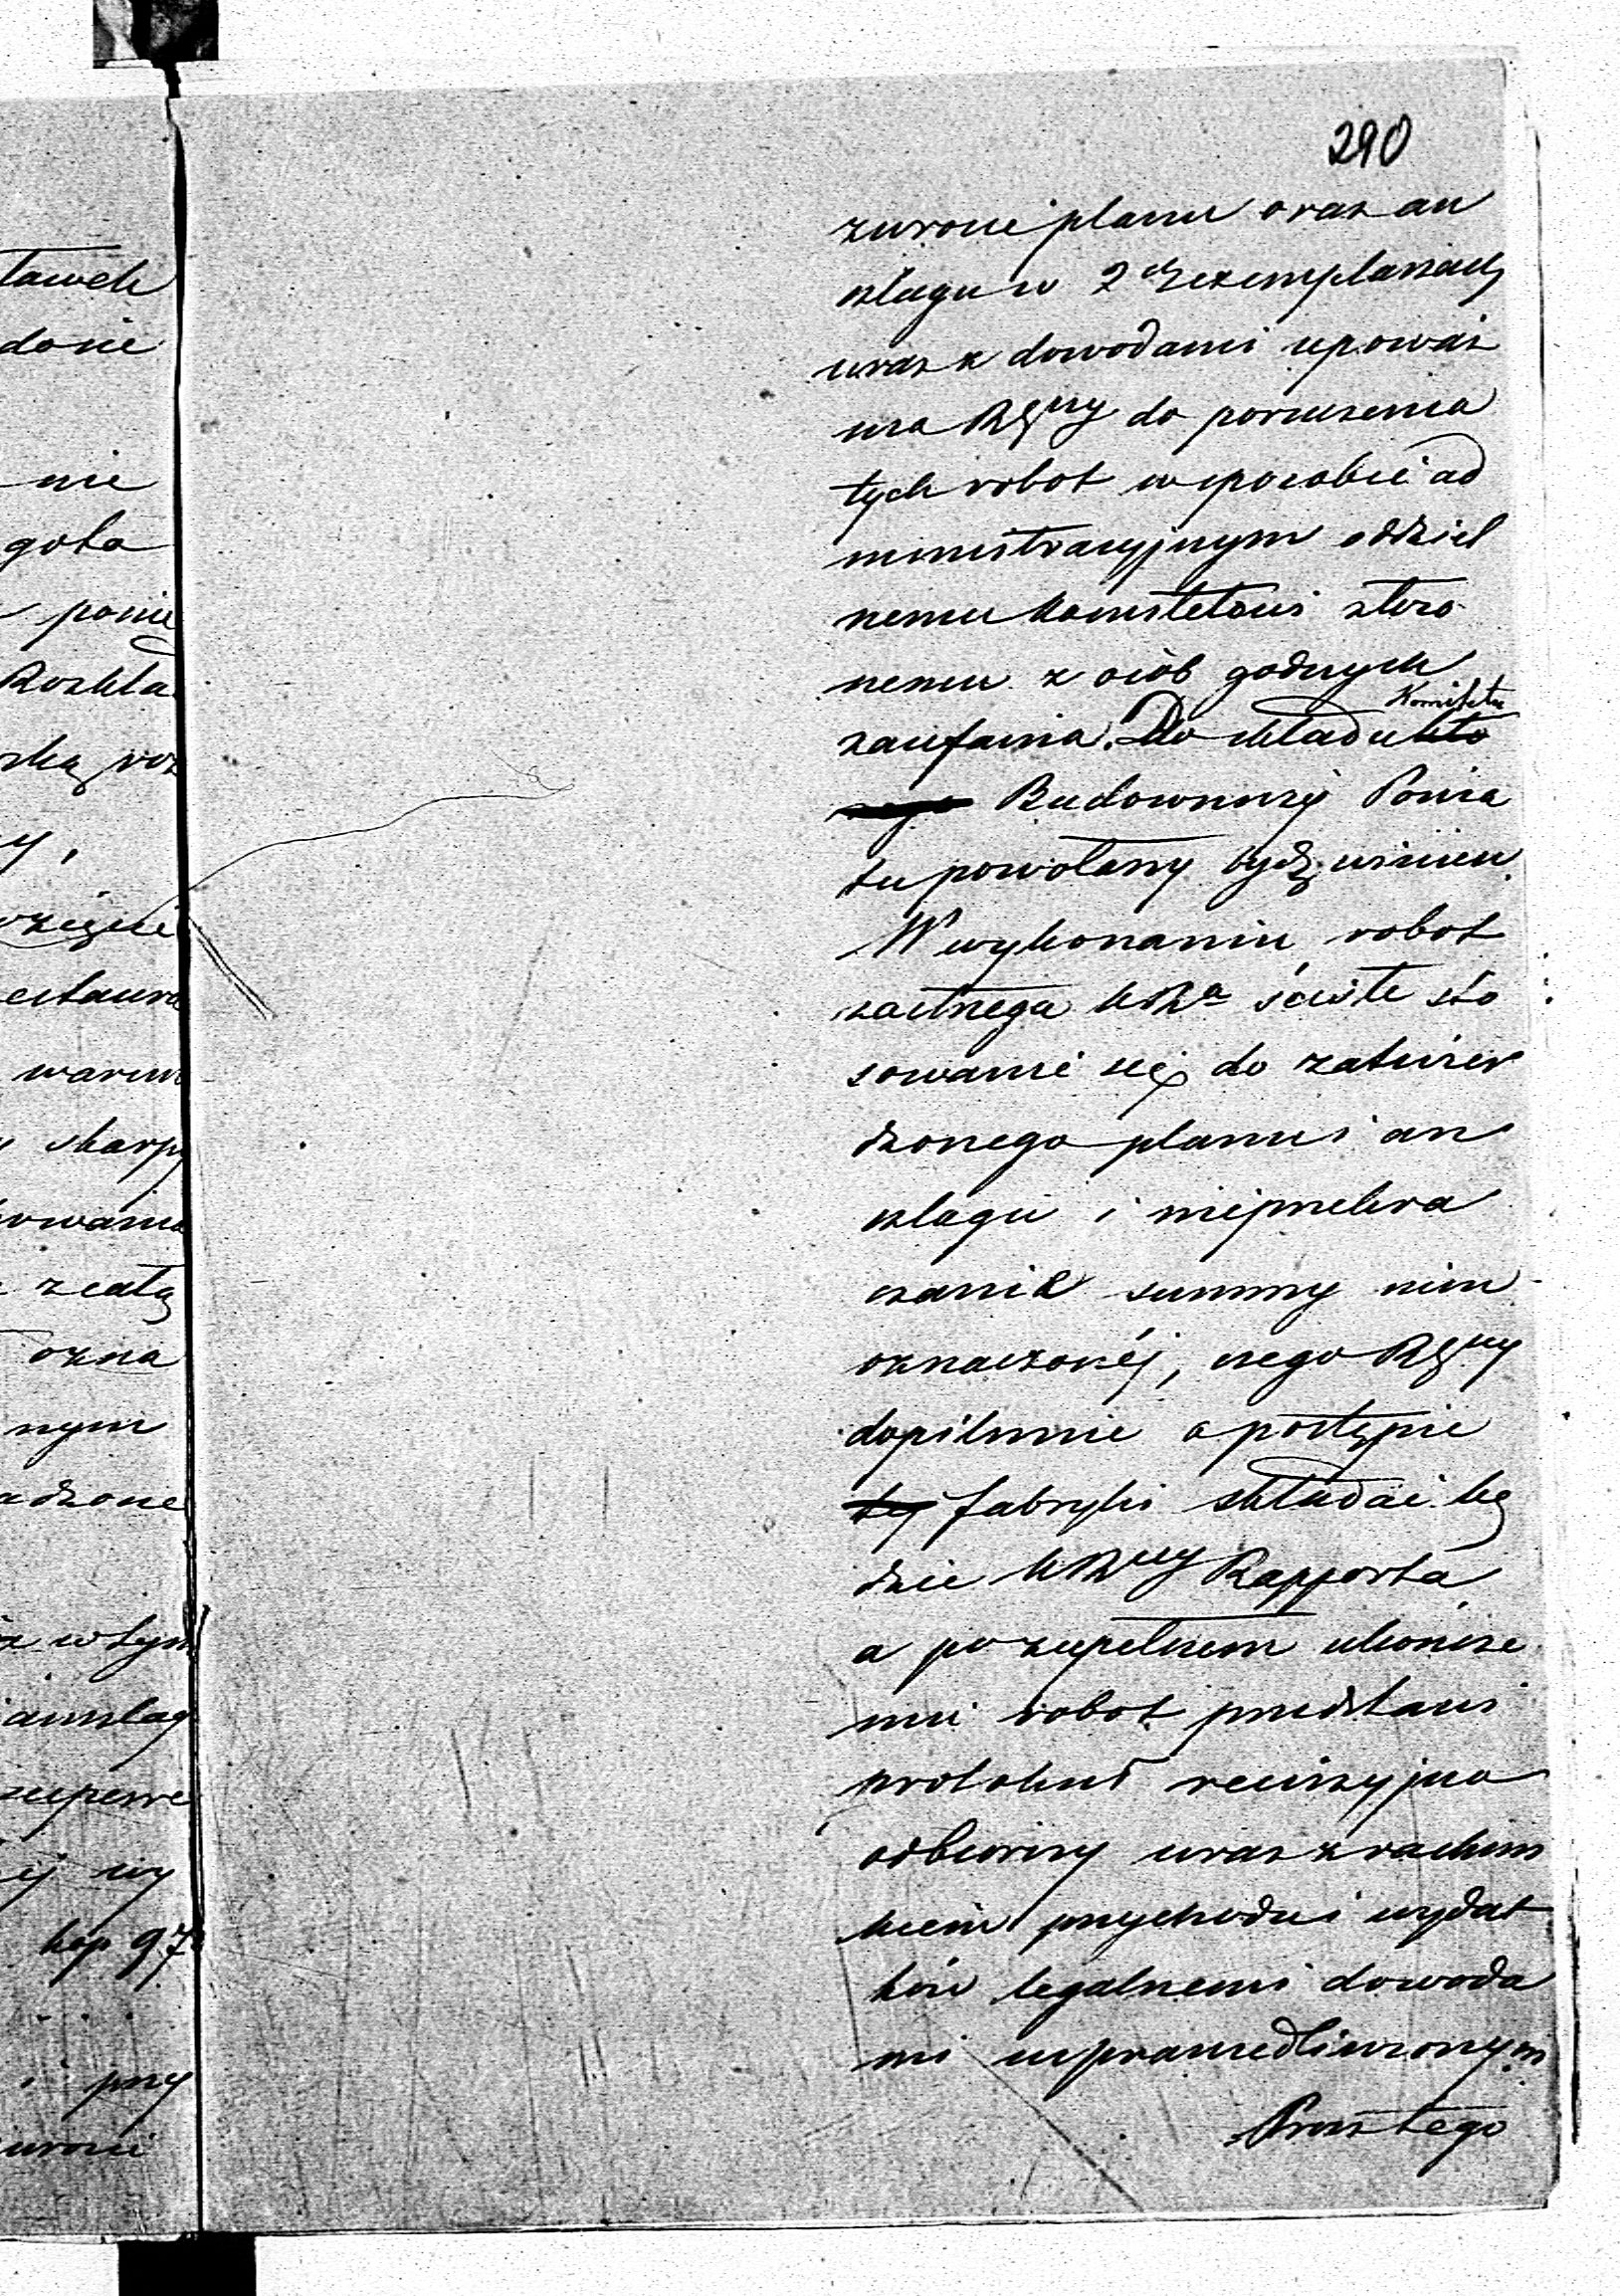 290
zwrocie planu oraz an
szlagu w 2ch exemplarzach
wraz z dowodami upoważ
nia Rząd Gny do poruczenia
tych robot w sposobie ad
ministracyjnym oddziel
nemu komitetowi złożo
nemu z osób godnych
zaufania. Do składu Komitetu
Budowniczy Powia
tu powołany bydź winien.
W wykonaniu robot
zastrzega KRa ścisłe sto
sowanie się do zatwier
dzonego planu i an
szlagu i nieprzekra
czanie summy nim
oznaczonéj, czego RGny
dopilnuie a o postępie
fabryki składać bę
dzie KRny Rapporta
a po zupełnem ukończe
niu robot przedstawi
protokuł rewizyjno
odbiorczy wraz z rachun
kiem przychodu i wydat
ków legalnemi dowoda
mi usprawiedliwionym.
Prosztego
tawek
donie
nie
gota
ponie
Rozkła
ską roz
y,
warun
skarp
rwania
z całą
ozna
nym
adzone
z w tym
anszlag
zupełne
ej wy
kop 97
i przy
zwroci